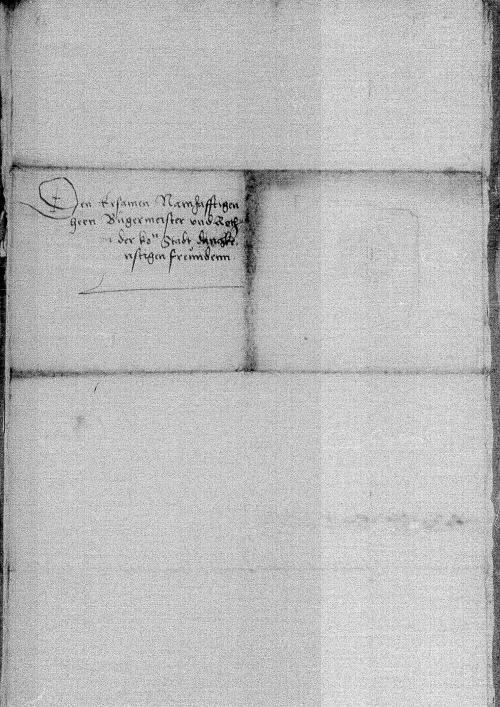 Den Ersamen Namhafftigen
heren Bürgermeister vnd Roth
der kon Stadt dangke
nstigen freündenn